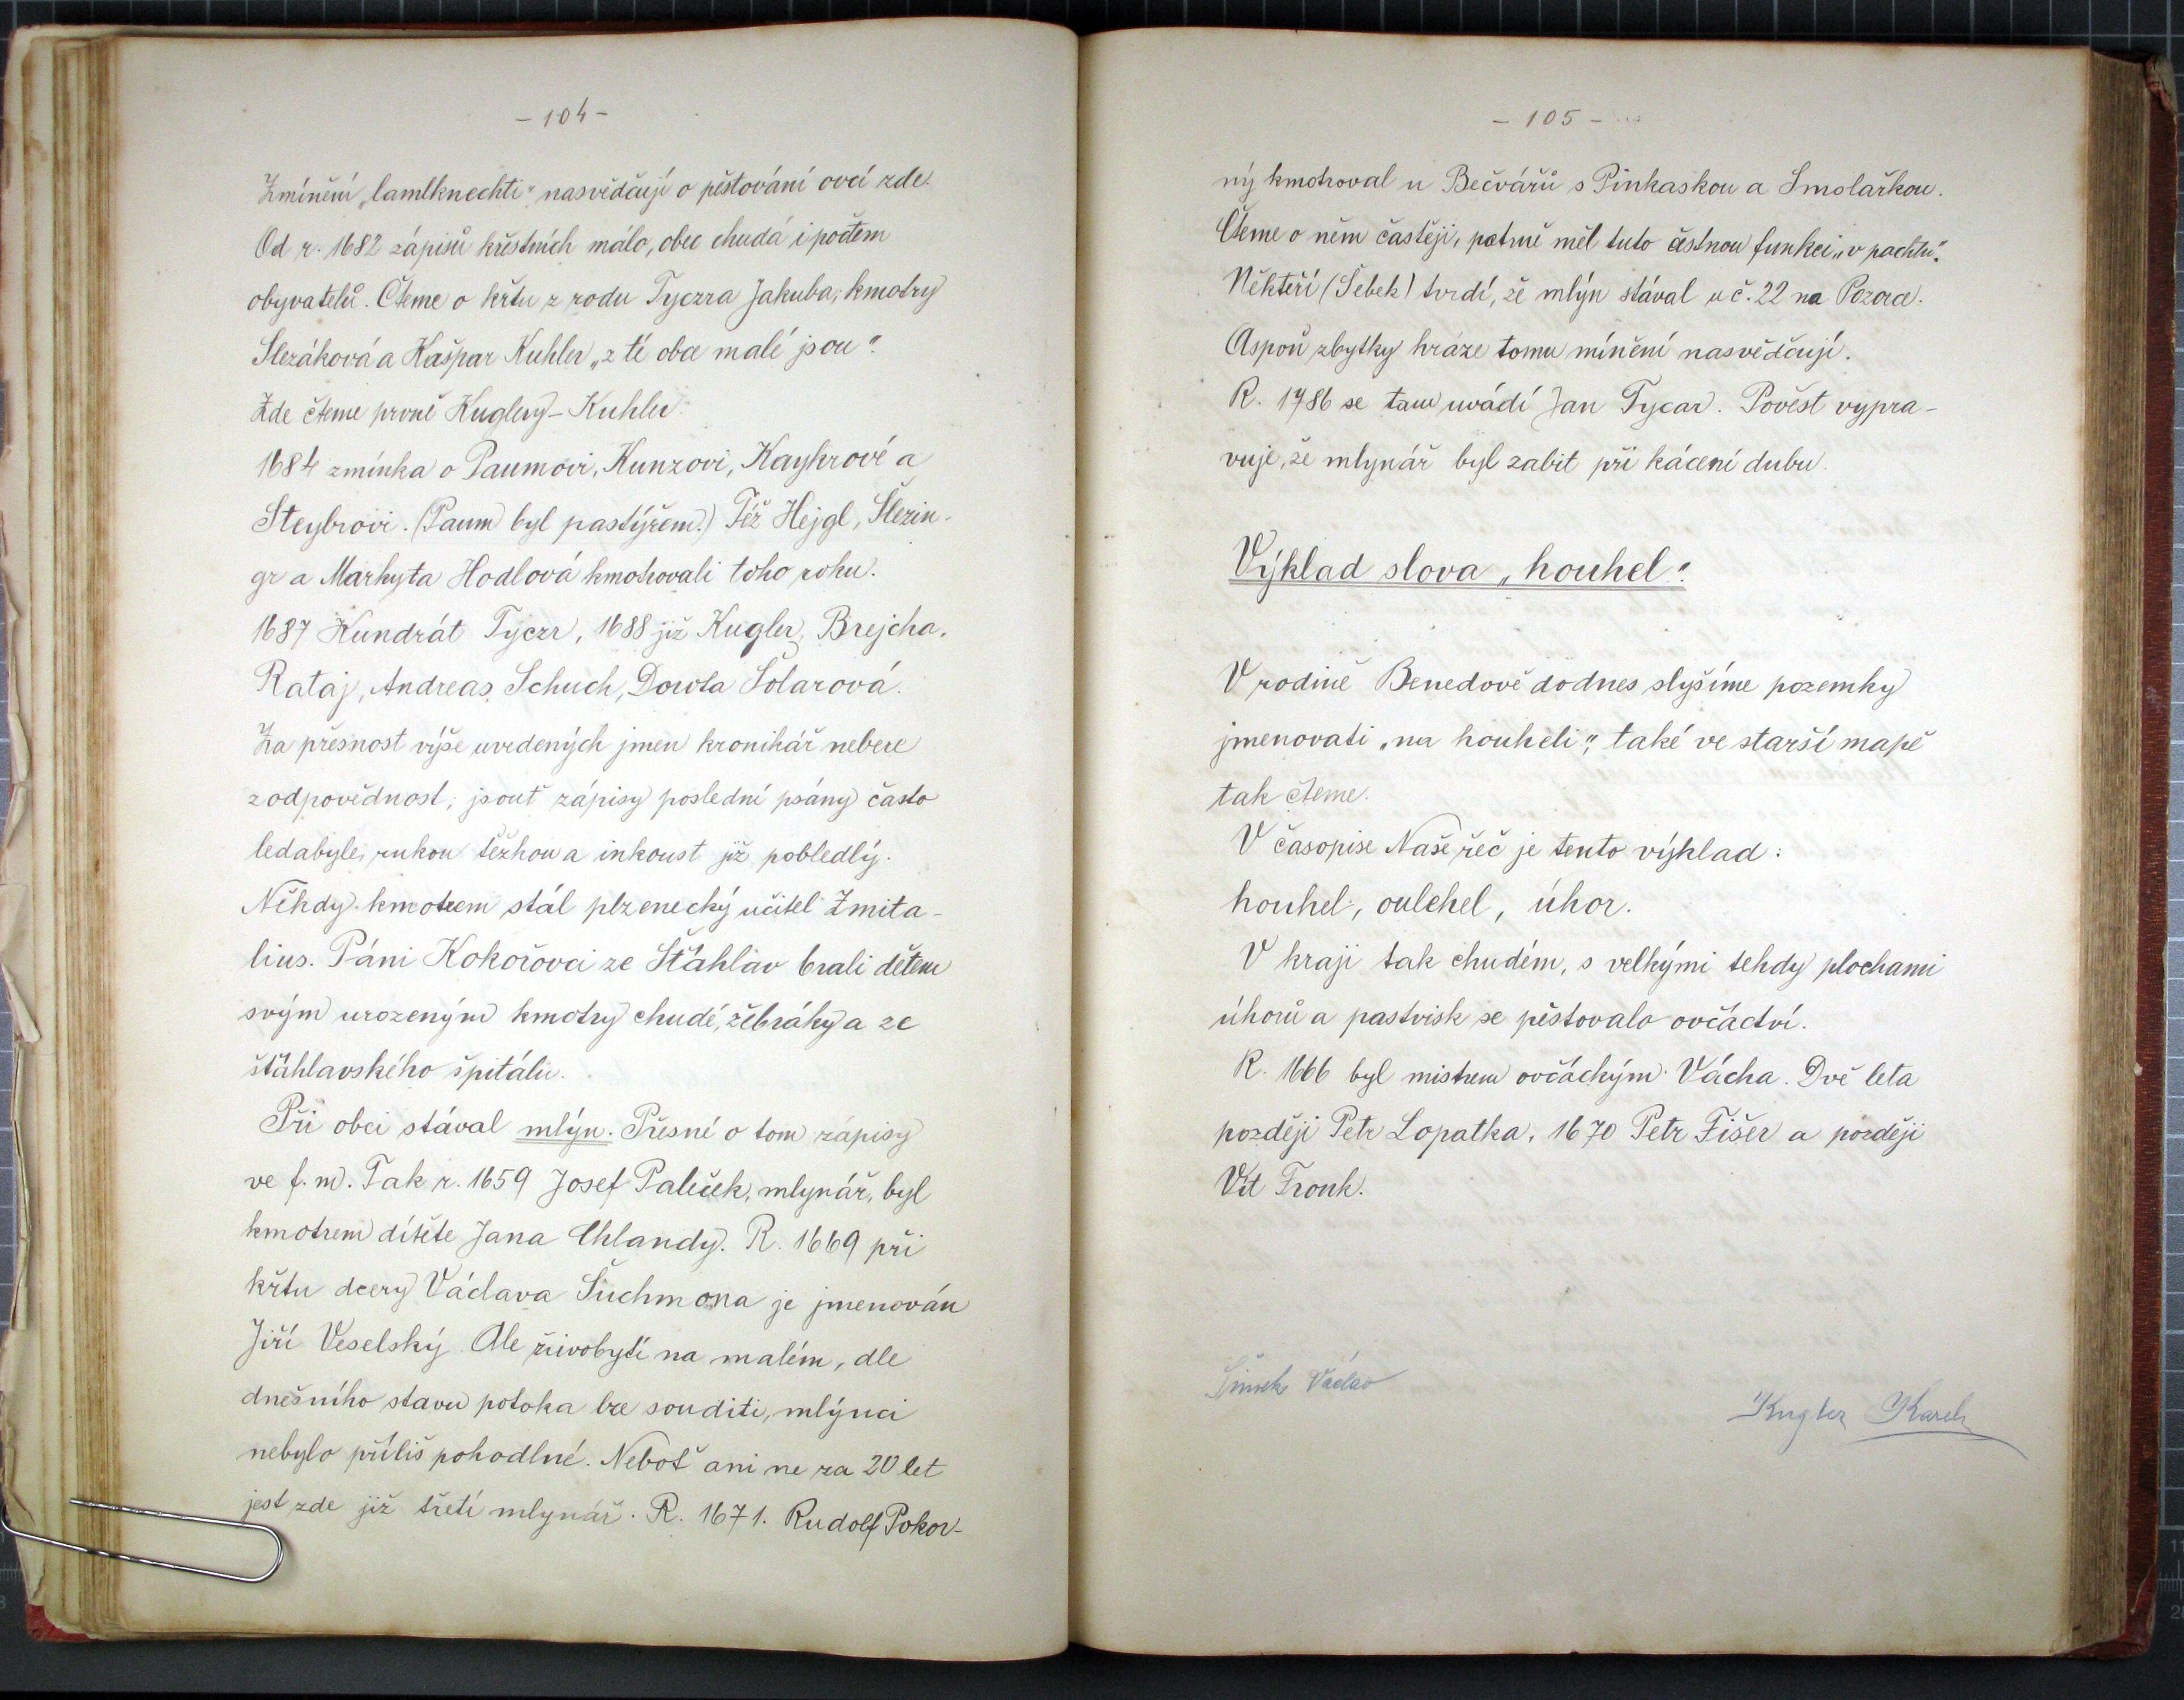 - 104 -
Zmínění „lamlknechti“ nasvědčují o pěstování ovcí zde.
Od r. 1682 zápisů křestních málo, obec chudá i počtem
obyvatelů. Čteme o křtu z rodu Tyczra Jakuba, kmotry
Slezáková a Kašpar Kuhler „z té obce malé jsou“.
Zde čteme prvně Kuglery - Kuhler.
1684 zmínka o Paumovi, Kunzovi, Kaykrové a
Steybrovi. (Paum byl pastýřem.) Též Hejgl, Šlezin-
gr a Markyta Hodlová kmotrovali toho roku.
1687 Kundrát Tyczr, 1688 již Kugler, Brejcha,
Rataj, Andreas Schuch, Dorota Šolarová.
Za přesnost výše uvedených jmen kronikář nebere
zodpovědnost, jsouť zápisy poslední psány často
ledabyle, rukou těžkou a inkoust již pobledlý.
Někdy kmotrem stál plzenecký učitel Zmita-
lius. Páni Kokořovci ze Šťáhlav brali dětem
svým urozeným kmotry chudé, žebráky a ze
šťáhlavského špitálu.
Při obci stával mlýn. Přesné o tom zápisy
ve f. m. Tak r. 1659 Josef Paleček, mlynář, byl
kmotrem dítěte Jana Chlandy. R. 1669 při
křtu dcery Václava Šuchmona je jmenován
Jiří Veselský. Ale živobytí na malém, dle
dnešního stavu potoka lze souditi, mlýnci
nebylo příliš pohodlné. Neboť ani ne za 20 let
jest zde již třetí mlynář. R. 1671. Rudolf Pokor-
- 105 -
ný kmotroval u Bečvářů s Pinkaskou a Smolařkou.
Čteme o něm častěji, patrně měl tuto čestnou funkci „v pachtu“.
Někteří (Šebek) tvrdí, že mlýn stával u č. 22 na Pozorce.
Aspoň zbytky hráze tomu mínění nasvědčují.
R. 1786 se tam uvádí Jan Tycar. Pověst vypra-
vuje, že mlynář byl zabit při kácení dubu.
Výklad slova „houhel“.
V rodině Benedově dodnes slyšíme pozemky
jmenovati „na houheli“, také ve starší mapě
tak čteme.
V časopise Naše řeč je tento výklad:
houhel, oulehel, úhor.
V kraji tak chudém, s velkými tehdy plochami
úhorů a pastvisk se pěstovalo ovčáctví.
R. 1666 byl mistrem ovčáckým Vácha. Dvě leta
později Petr Lopatka, 1670 Petr Fišer a později
Vít Fronk.
Šimek Václav
Kugler Karel